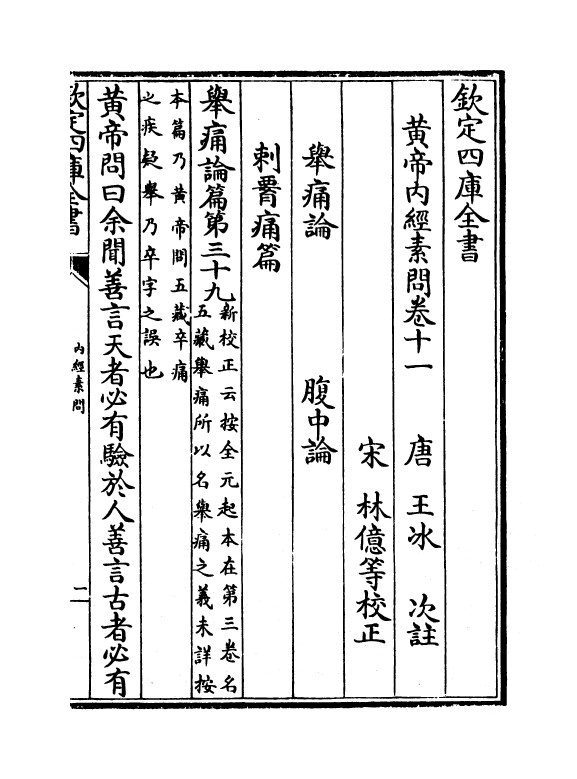 欽定四庫全書
黃帝內經素問卷十一
唐 王冰 次註
宋 林億等校正
舉痛論 腹中論
刺腰痛篇
舉痛論篇第三十九
新校正云按全元起本在第三卷名
五藏舉痛所以名舉痛之義未詳按
本篇乃黃帝問五藏卒痛
之疾疑舉乃卒字之誤也
黃帝問曰余聞善言天者必有驗於人善言古者必有
欽定四庫全書
內經素問
二